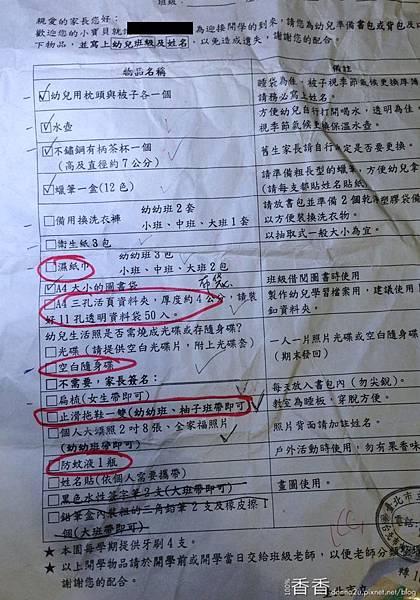 班級：
親愛的家長您好：
歡迎您的小寶貝就 為迎接開學的到來，請您為幼兒準備書包或背包以
下物品，並寫上幼兒班級及姓名，以免造成遺失，謝謝您的配合。
物品名稱 備註
☑幼兒用枕頭與被子各一個 睡袋為佳，被子視季節氣候更換厚薄
請務必寫上姓名。
☑水壺 方便幼兒自行打開喝水，透明為佳
視季節氣候更換保溫水壺。
☑不鏽鋼有柄茶杯一個
（高及直徑約7公分） 舊生家長請自行 定是否要更換。
☑蠟筆一盒(12色) 請準備粗長型的蠟筆，方便幼兒拿
（請每支都貼姓名貼紙
□備用換洗衣褲 幼幼班2套
小班、中班、大班1套 請放書包並準備2個乾淨塑膠袋
以方便裝換洗衣物。
□衛生紙3包 以抽取式一般大小為宜。
□濕紙巾 幼幼班3包
小班、中班、大班2包
☑A4大小的圖書袋 班級借閱圖書時使用
□A4三孔活頁資料夾，厚度約4公分，請裝
好11孔透明資料袋50入。 製作幼兒學習檔案用，建議使用
釦資料夾。
幼兒生活照是否需燒成光碟或存隨身碟？
□光碟（請提供空白光碟片，附上光碟套）
□空白隨身碟
□不需要，家長簽名： 一人一片照片光碟或空白隨身碟
（期末發回）
□扁梳(女生帶即可) 每天放入書包內（勿尖銳）。
□止滑拖鞋一雙(幼幼班、柚子班帶即可) 教室為睡板，穿脫方便。
□個人大頭照2吋8張、全家福照片
(幼幼班帶即可) 照片背面請加註姓名。
□防蚊液1瓶 戶外活動時使用，勿有果香味
□姓名貼(依個人需要攜帶)
□黑色水性簽字筆2支(大班帶即可) 畫圖使用。
□鉛筆盒內裝粗的三角鉛筆2支及橡皮擦1
個(大班帶即可)
★本園每學期提供牙刷4支。
★以上開學物品請於開學前或開學當日交給班級老師，以便老師分類
謝謝您的配合。
100% 香香
donna2u.pixnet.net/blog